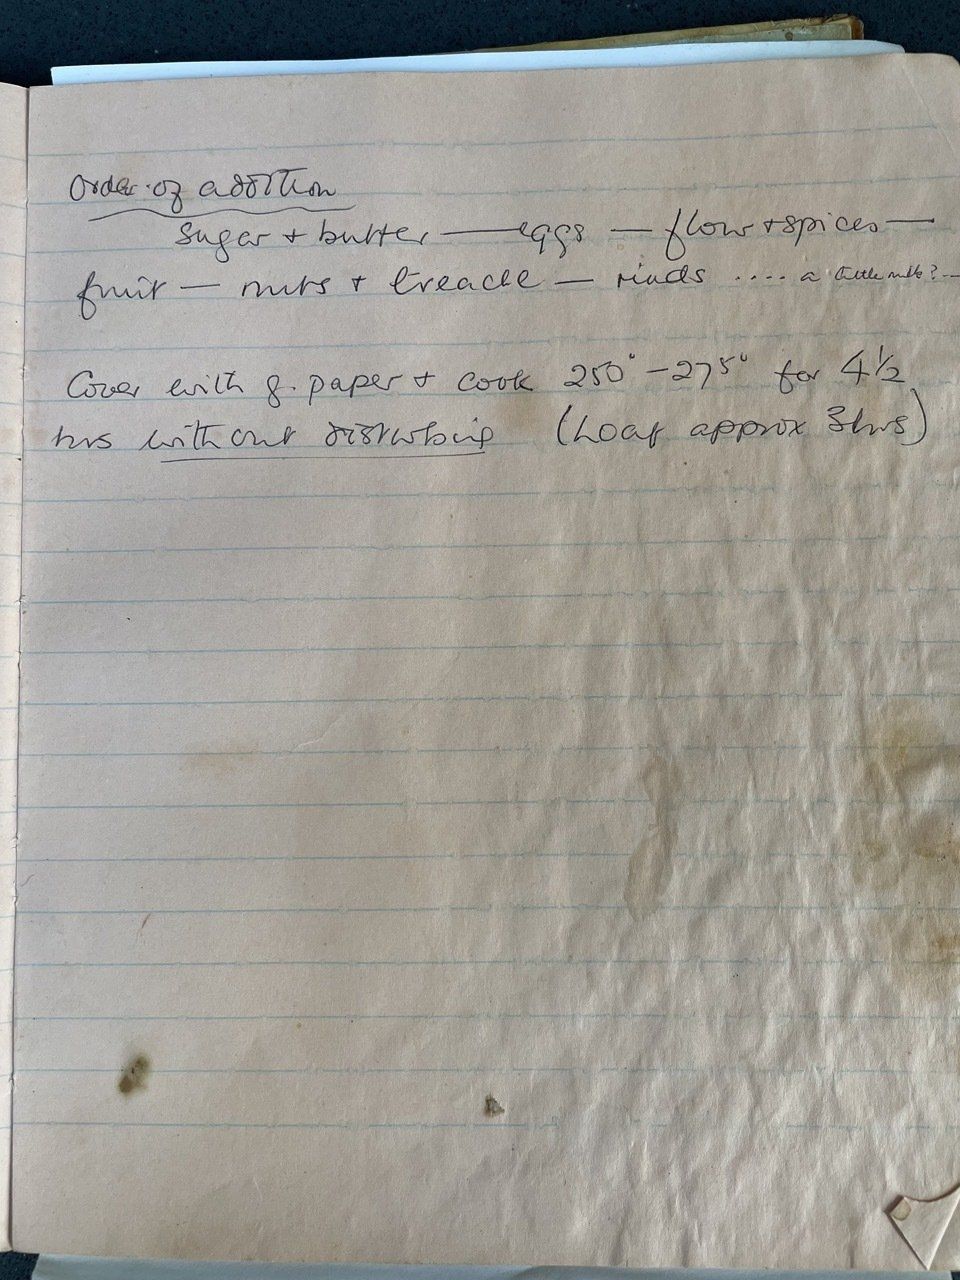 Order of addition
sugar + butter — eggs — flour + spices —
fruit — nuts + treacle — rinds .... a little milk? —
Cover with g. paper + cook 250° - 275° for 4½
hrs without disturbing (Loaf approx 3hrs)